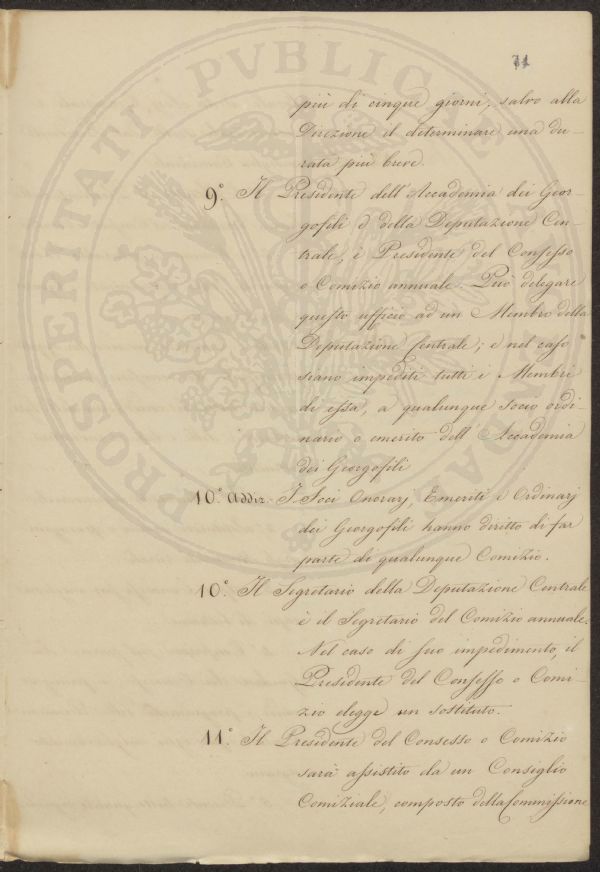 71
PROSPERITATI PVBLICAE
più di cinque giorni, salvo alla
Direzione il determinare una du-
rata più breve.
9.° Il Presidente dell'Accademia dei Geor-
gofili e della Deputazione Cen-
trale, è Presidente del Consesso
o Comizio annuale. Può delegare
questo ufficio ad un Membro della
Deputazione Centrale; e nel caso
siano impediti tutti i Membri
di essa, a qualunque socio ordi-
nario o emerito dell'Accademia
dei Georgofili
10.° Addiz. I Soci Onorarj, Emeriti e Ordinarj
dei Georgofili hanno diritto di far
parte di qualunque Comizio.
10.° Il Segretario della Deputazione Centrale
è il Segretario del Comizio annuale.
Nel caso di suo impedimento, il
Presidente del Consesso o Comi-
zio elegge un sostituto.
11.° Il Presidente del Consesso o Comizio
sarà assistito da un Consiglio
Comiziale, composto della Commissione